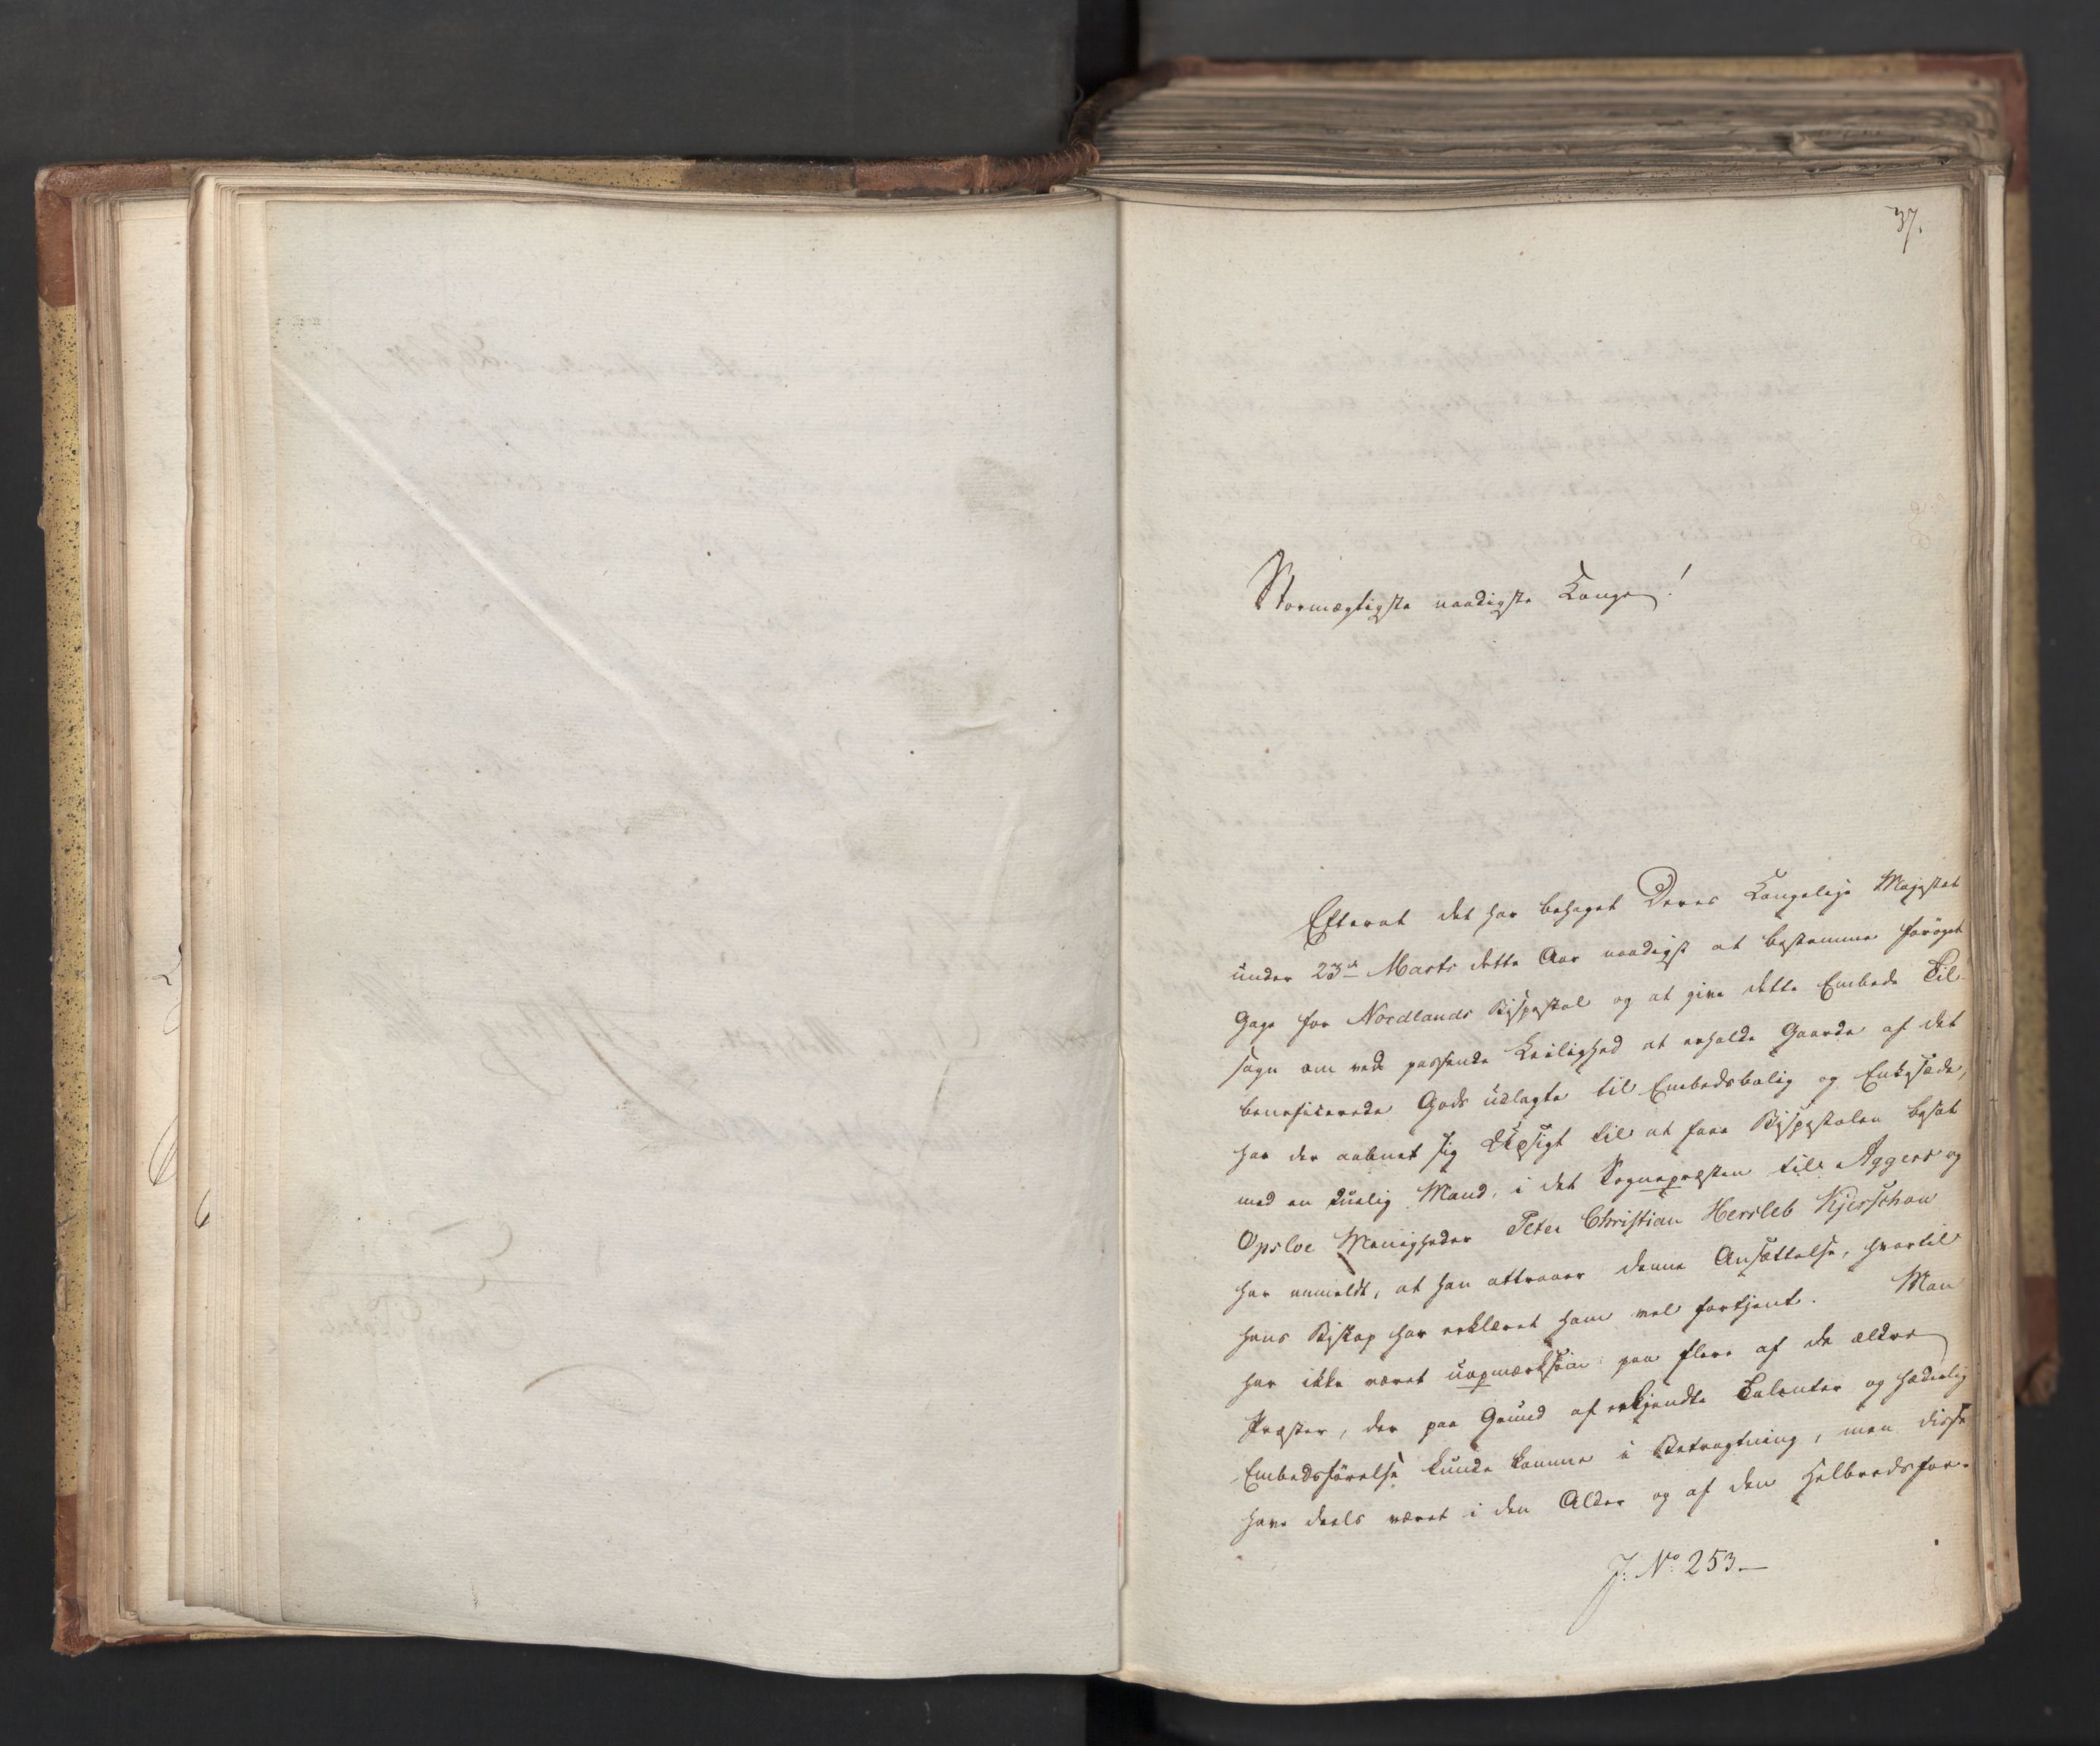 37.
Stormægtigste naadigste Konge!
Efterat det har behaget Deres Kongelige Majestæt
under 23de Marts dette Aar naadigst at bestemme forøget
Gage for Nordlands Bispestol og at give dette Embede Til-
sagn om ved passende Leilighed at erholde Gaarde af det
beneficerede Gods udlagte til Embedsbolig og Enkesæde,
har der aabnet sig Udsigt til at faae Bispestolen besat
med en duelig Mand, i det Sognepræsten til Aggers og
Opsloe Menigheder Peter Christian Hersleb Kjerschow
har anmeldt, at han attraaer denne Ansættelse, hvortil
hans Biskop har erklæret ham vel fortjent. Man
har ikke været uopmærksom paa flere af de ældre
Præster, der paa Grund af erkjendte Talenter og hæderlig
Embedsførelse kunde komme i Betragtning, men disse
have deels været i den Alder og af den Helbredsfor-
J. No 253.